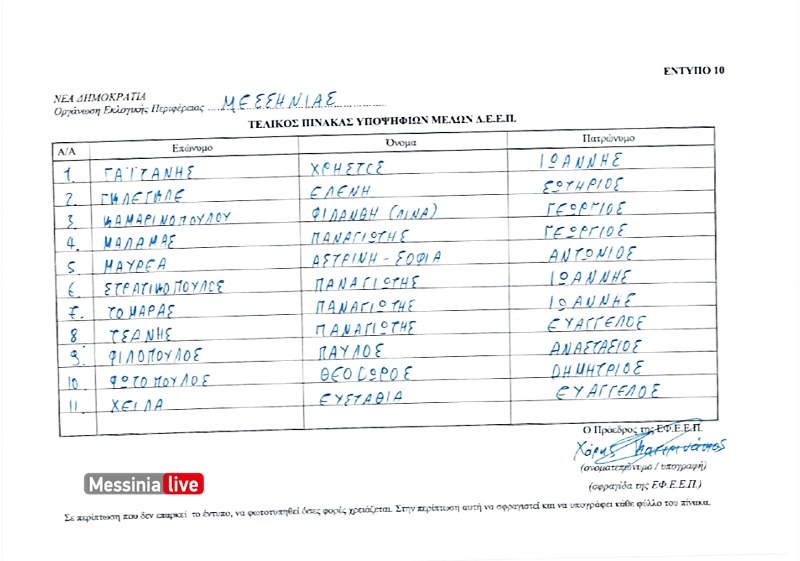 ΕΝΤΥΠΟ 10
ΝΕΑ ΔΗΜΟΚΡΑΤΙΑ
Οργάνωση Εκλογικής Περιφέρειας ....ΜΕΣΣΗΝΙΑΣ....
ΤΕΛΙΚΟΣ ΠΙΝΑΚΑΣ ΥΠΟΨΗΦΙΩΝ ΜΕΛΩΝ Δ.Ε.Ε.Π.
Α/Α Επώνυμο Όνομα Πατρώνυμο
1. ΓΑΪΤΑΝΗΣ ΧΡΗΣΤΟΣ ΙΩΑΝΝΗΣ
2. ΓΚΛΕΓΚΛΕ ΕΛΕΝΗ ΣΩΤΗΡΙΟΣ
3. ΚΑΜΑΡΙΝΟΠΟΥΛΟΥ ΦΙΛΑΝΘΗ (ΛΙΝΑ) ΓΕΩΡΓΙΟΣ
4. ΜΑΛΑΜΑΣ ΠΑΝΑΓΙΩΤΗΣ ΓΕΩΡΓΙΟΣ
5. ΜΑΥΡΕΑ ΑΣΤΡΙΝΗ - ΣΟΦΙΑ ΑΝΤΩΝΙΟΣ
6. ΣΤΡΑΤΙΚΟΠΟΥΛΟΣ ΠΑΝΑΓΙΩΤΗΣ ΙΩΑΝΝΗΣ
7. ΤΟΜΑΡΑΣ ΠΑΝΑΓΙΩΤΗΣ ΙΩΑΝΝΗΣ
8 ΤΣΩΝΗΣ ΠΑΝΑΓΙΩΤΗΣ ΕΥΑΓΓΕΛΟΣ
9. ΦΙΛΟΠΟΥΛΟΣ ΠΑΥΛΟΣ ΑΝΑΣΤΑΣΙΟΣ
10. ΦΩΤΟΠΟΥΛΟΣ ΘΕΟΔΩΡΟΣ ΔΗΜΗΤΡΙΟΣ
11. ΧΕΙΛΑ ΕΥΣΤΑΘΙΑ ΕΥΑΓΓΕΛΟΣ
Ο Πρόεδρος της ΕΦ.Ε.Ε.Π.
(ονοματεπώνυμο / υπογραφή)
(σφραγίδα της ΕΦ.Ε.Ε.Π.)
Messinia live
Σε περίπτωση που δεν επαρκεί το έντυπο, να φωτοτυπηθεί όσες φορές χρειάζεται. Στην περίπτωση αυτή να σφραγιστεί και να υπογράφει κάθε φύλλο του πίνακα.